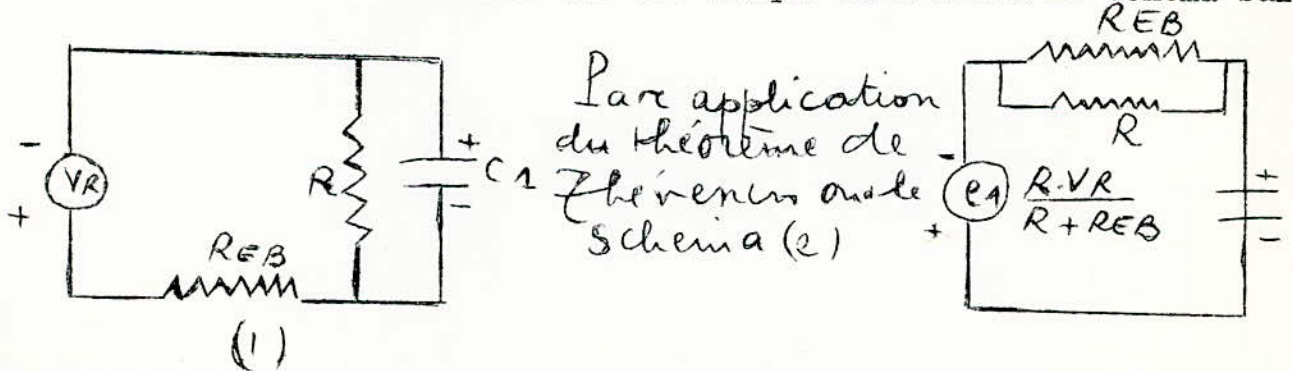 schema
REB
R
Par application
du théorème de
Thévenin on a le
schema (2)
-
VR
+
R
+
C1
-
REB
(1)
-
e1
+
R.VR
R + REB
+
-